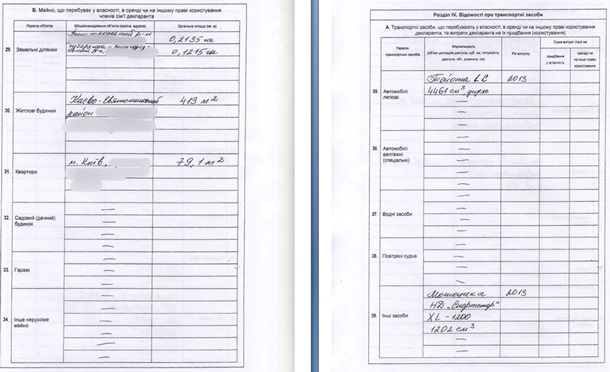 Б. Майно, що перебуває у власності, в оренді чи на іншому праві користування
членів сім'ї декларанта
Перелік об'єктів
Місцезнаходження об'єкта (країна, адреса)
Загальна площа (кв. м)
29. Земельні ділянки
р-н
0,2135 га
0,1215 га
30. Житлові будинки
Києво-Святошинський
район
413 м²
31. Квартири
м. Київ,
79,1 м²
32. Садовий (дачний)
будинок
33. Гаражі
34. Інше нерухоме
майно
Розділ IV. Відомості про транспортні засоби
А. Транспортні засоби, що перебувають у власності, в оренді чи на іншому праві користування
декларанта, та витрати декларанта на їх придбання (користування)
Перелік
транспортних засобів
Марка/модель
(об'єм циліндрів двигуна, куб. см, потужність
двигуна, кВт, довжина, см)
Рік випуску
Сума витрат (грн) на
придбання
у власність
оренду чи
на інше право
користування
35. Автомобілі
легкові
Тойота LC
4461 см³, дизель
2013
36. Автомобілі
вантажні
(спеціальні)
37. Водні засоби
38. Повітряні судна
39. Інші засоби
Мотоцикл
2013
НД „Спортстер"
XL - 1200
1202 см³